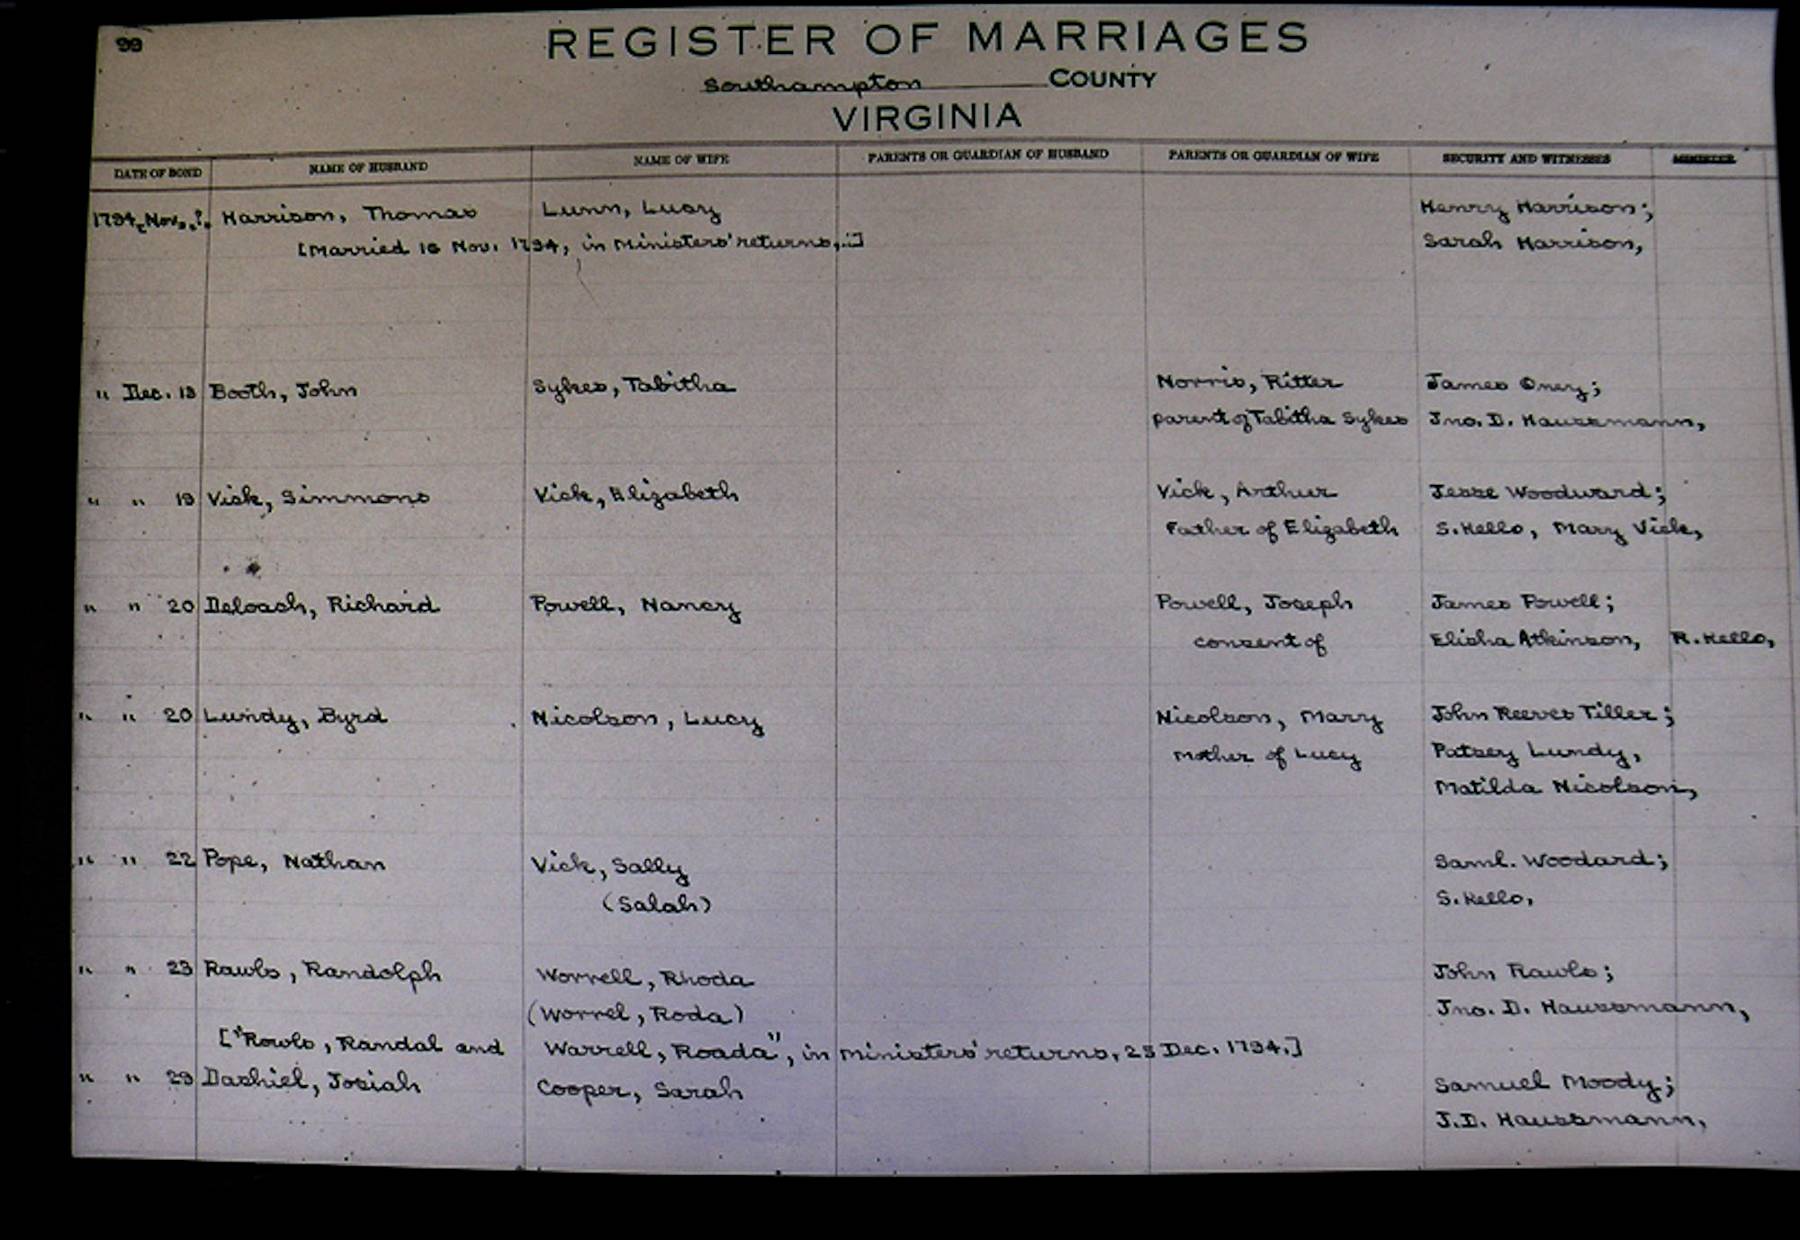 99
REGISTER OF MARRIAGES
Southampton COUNTY
VIRGINIA
DATE OF BOND NAME OF HUSBAND NAME OF WIFE PARENTS OR GUARDIAN OF HUSBAND PARENTS OR GUARDIAN OF WIFE SECURITY AND WITNESSES MINISTER
1794, Nov., ?. Harrison, Thomas Lunn, Lucy Henry Harrison;
[Married 16 Nov. 1794, in Ministers' returns,..] Sarah Harrison,
" Dec. 13 Booth, John Sykes, Tabitha Norris, Ritter James Onery;
parent of Tabitha Sykes Jno. D. Haussmann,
" " 19 Vick, Simmons Vick, Elizabeth Vick, Arthur Jesse Woodward;
Father of Elizabeth S. Kello, Mary Vick,
" " 20 Deloach, Richard Powell, Nancy Powell, Joseph James Powell;
consent of Elisha Atkinson, R. Kello,
" " 20 Lundy, Byrd Nicolson, Lucy Nicolson, Mary John Reeves Tiller;
Mother of Lucy Patsey Lundy,
Matilda Nicolson,
" " 22 Pope, Nathan Vick, Sally Saml. Woodard;
(Salah) S. Kello,
" " 23 Rawls, Randolph Worrell, Rhoda John Rawls;
(Worrel, Roda) Jno. D. Haussmann,
["Rowls, Randal and Warrell, Roada", in Ministers' returns, 25 Dec. 1794.]
" " 29 Dashiel, Josiah Cooper, Sarah Samuel Moody;
J.D. Haussmann,